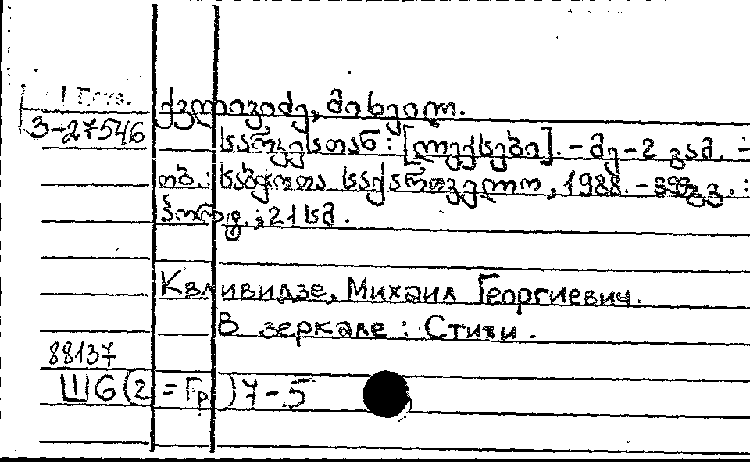 ქვლივიძე, მიხეილ.
3-27546
სარკესთან : [ლექსები]. - მე-2 გამ. -
თბ. : საბჭოთა საქართველო, 1988. - 399გვ. :
პორტ. ; 21 სმ.
Квливидзе, Михаил Георгиевич.
В зеркале : Стихи.
88137
Ш6(2=Гр)7-5